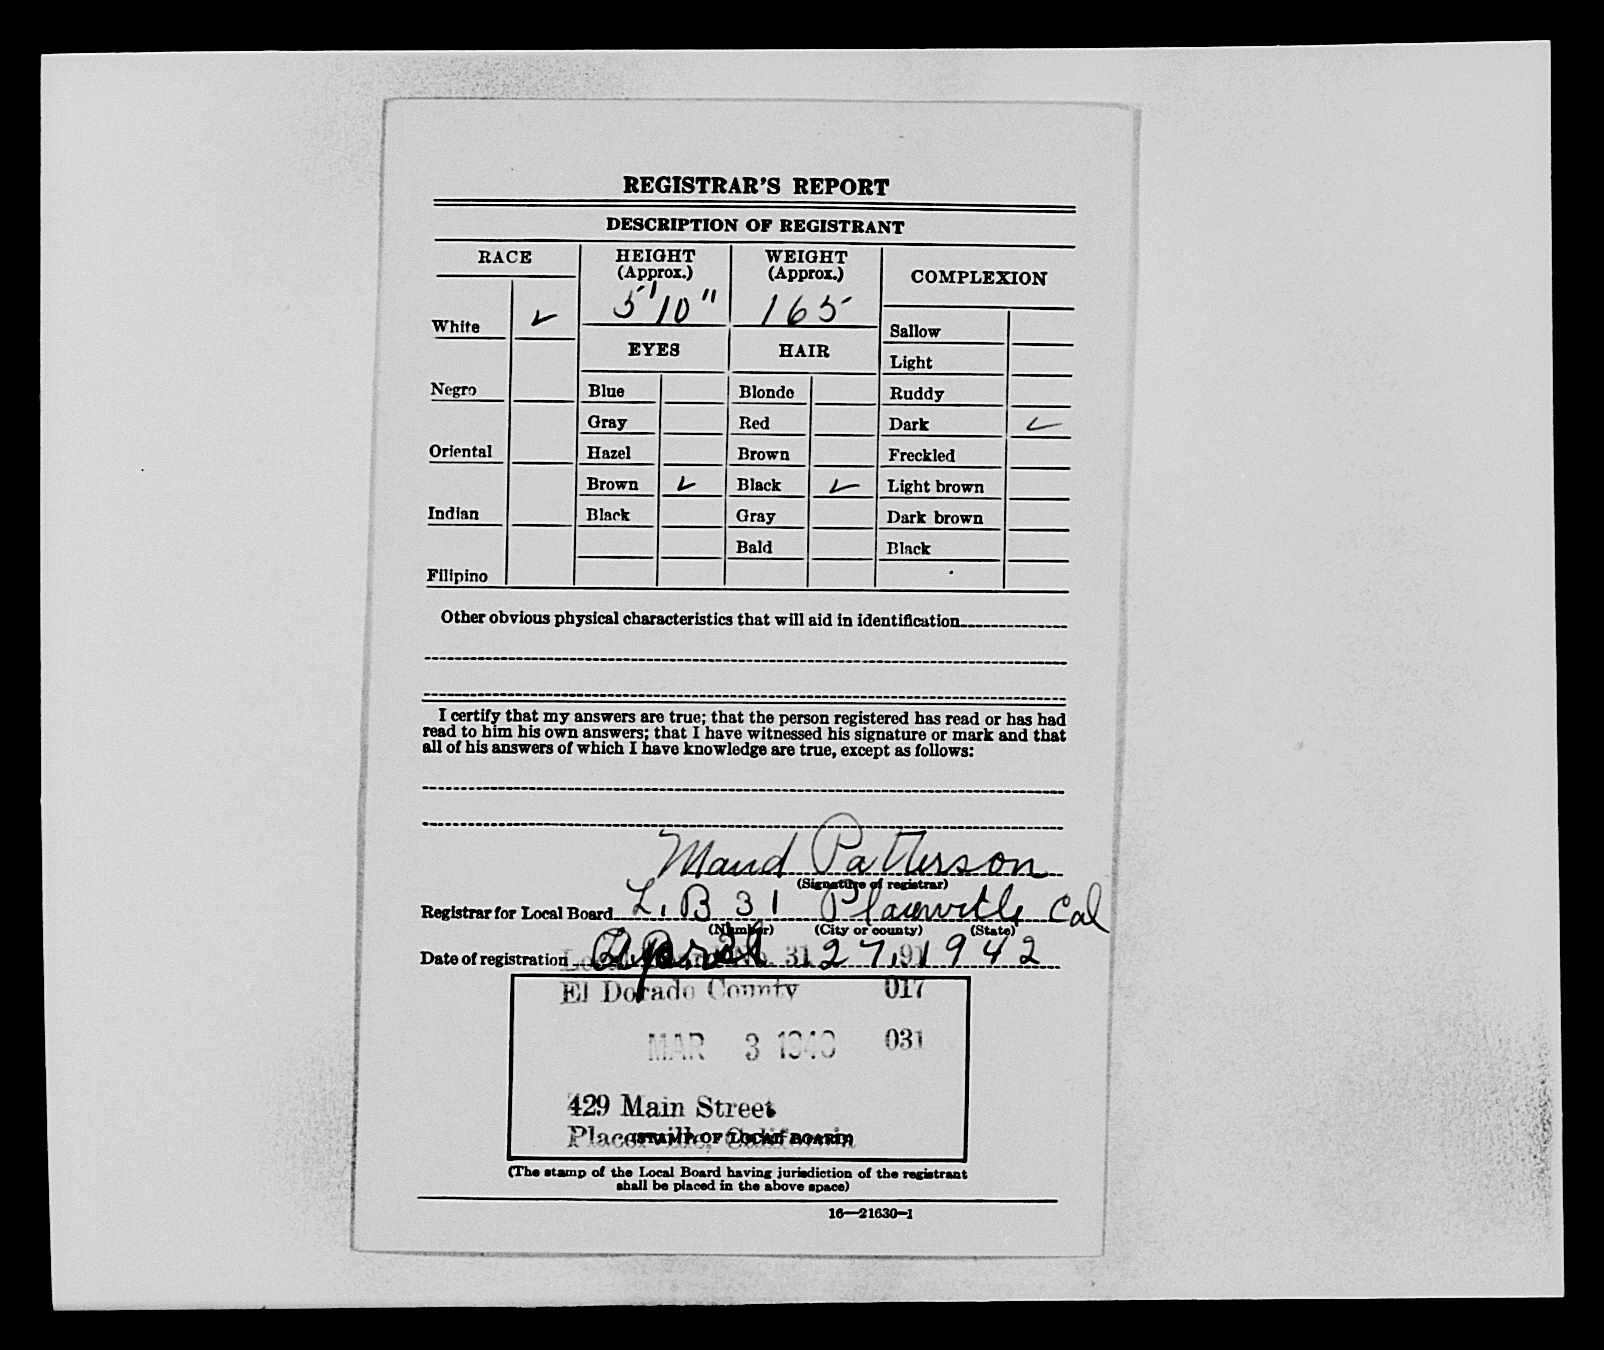 REGISTRAR'S REPORT
DESCRIPTION OF REGISTRANT
RACE
HEIGHT
(Approx.)
WEIGHT
(Approx.)
COMPLEXION
5'10"
165
White ✓
Sallow
EYES
HAIR
Light
Negro
Blue
Blonde
Ruddy
Gray
Red
Dark ✓
Oriental
Hazel
Brown
Freckled
Brown ✓
Black ✓
Light brown
Indian
Black
Gray
Dark brown
Bald
Black
Filipino
Other obvious physical characteristics that will aid in identification
I certify that my answers are true; that the person registered has read or has had
read to him his own answers; that I have witnessed his signature or mark and that
all of his answers of which I have knowledge are true, except as follows:
Maud Patterson
(Signature of registrar)
Registrar for Local Board L. B 31 Placerville Cal
(Number) (City or county) (State)
Date of registration April 27, 1942
31 91
El Dorado County 017
MAR 3 1943 031
429 Main Street
Placerville, California
(STAMP OF LOCAL BOARD)
(The stamp of the Local Board having jurisdiction of the registrant
shall be placed in the above space)
16—21630-1